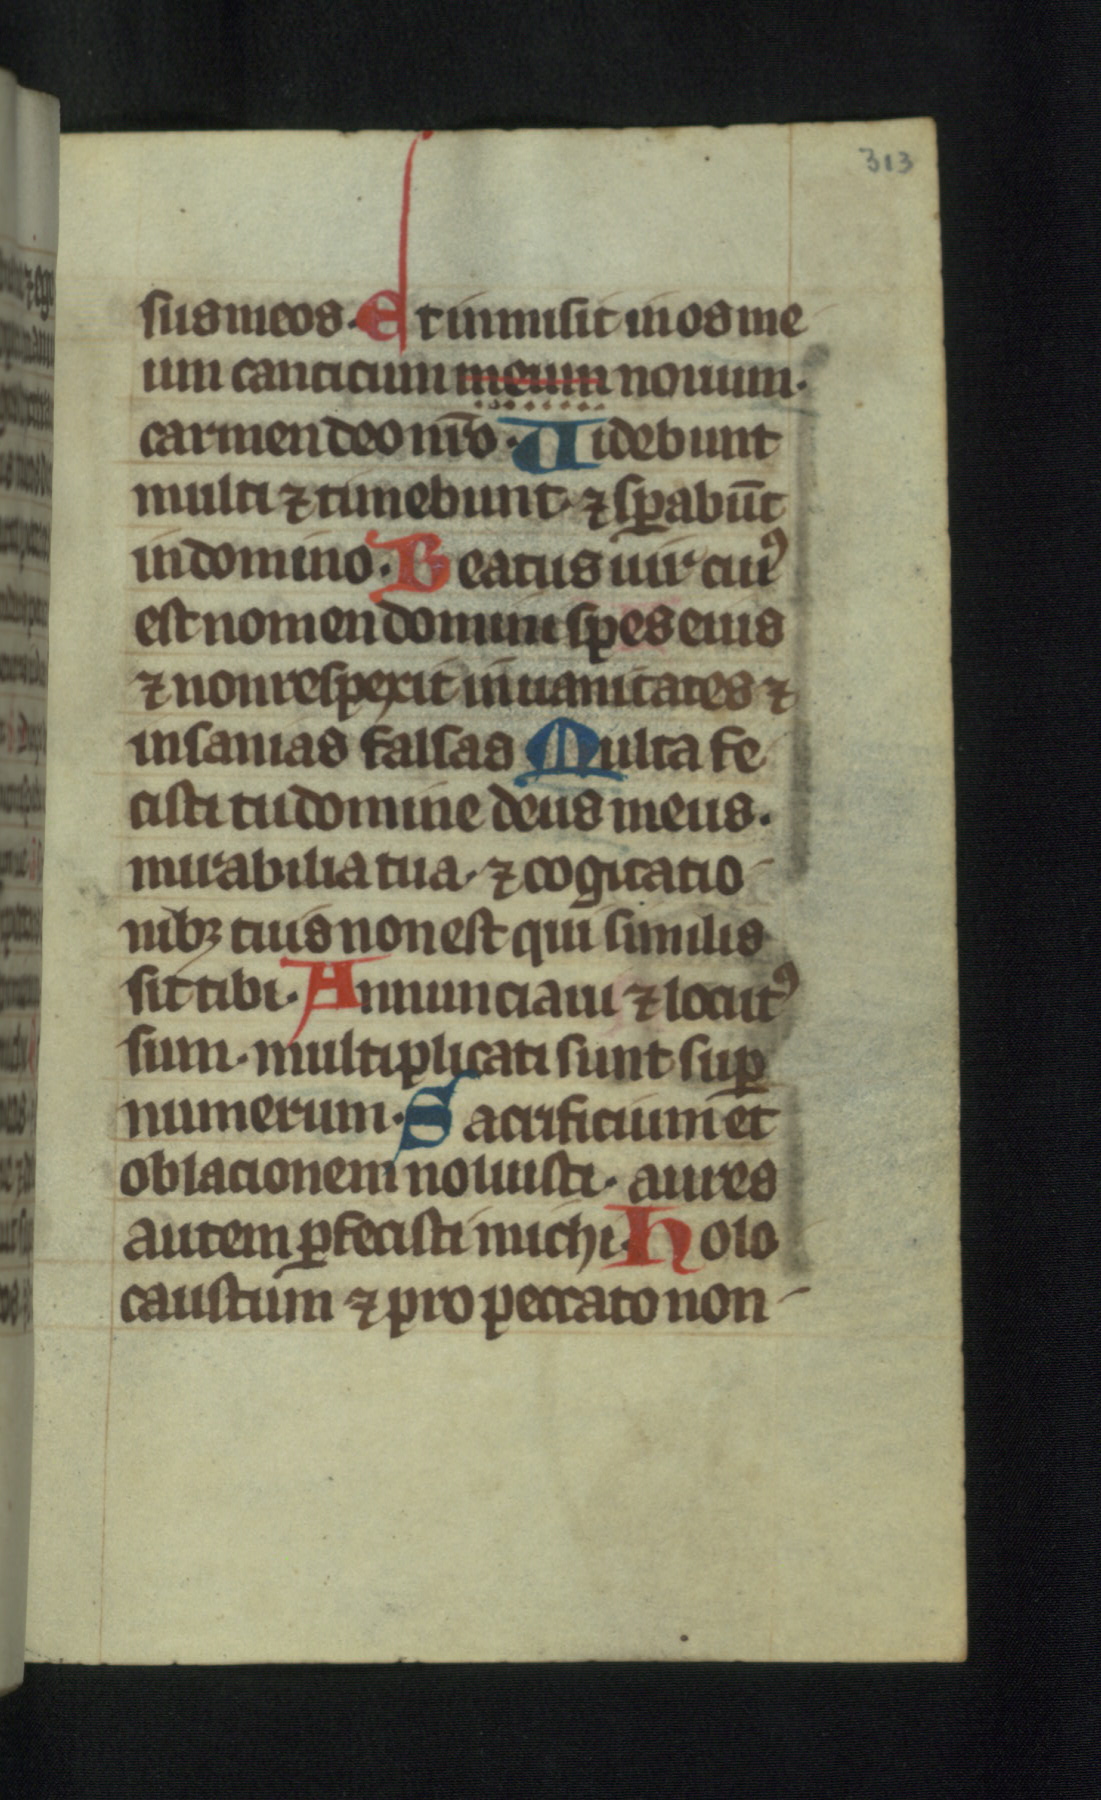 313
susmeos. Et inmisit in os me
um canticum meum nouum.
carmen deo nr̄o. Uidebunt
multi ⁊ timebunt ⁊ sꝑabūt
in domino. Beatus uir cuiꝰ
est nomen domini spes eius
⁊ non respexit in uanitates ⁊
insanias falsas Multa fe
cisti tu domine deus meus.
mirabilia tua. ⁊ cogitatio
nibꝫ tuis non est qui similis
sit tibi. Annunciaui ⁊ locutꝰ
sum. multiplicati sunt suꝑ
numerum. Sacrificium et
oblacionem noluisti. aures
autem ꝑfecisti michi. Holo
caustum ⁊ pro peccato non